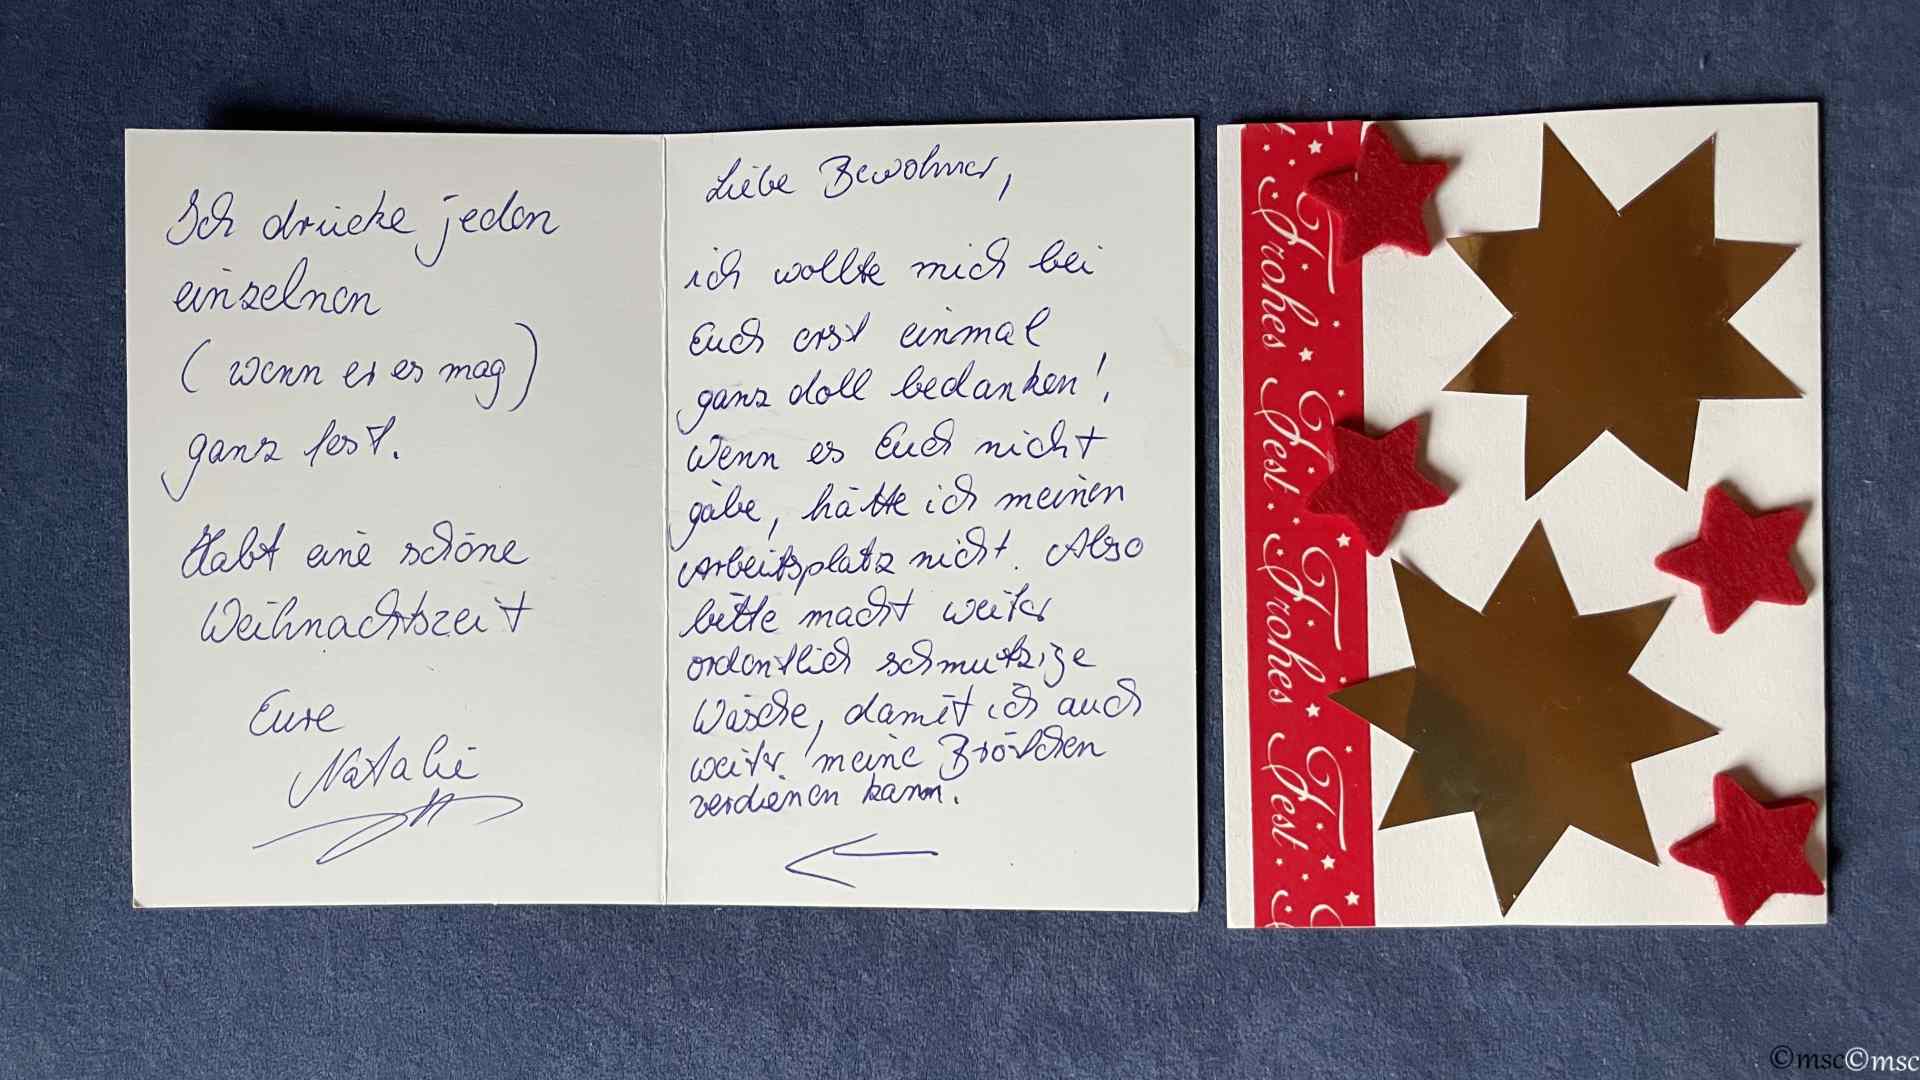 Liebe Bewohner,
ich wollte mich bei
Euch erst einmal
ganz doll bedanken!
Wenn es Euch nicht
gäbe, hätte ich meinen
Arbeitsplatz nicht. Also
bitte macht weiter
ordentlich schmutzige
Wäsche, damit ich auch
weiter meine Brötchen
verdienen kann.
Ich drücke jeden
einzelnen
(wenn er es mag)
ganz fest.
Habt eine schöne
Weihnachtszeit
Eure
Natalie
Frohes Fest · Frohes Fest ·
©msc©msc